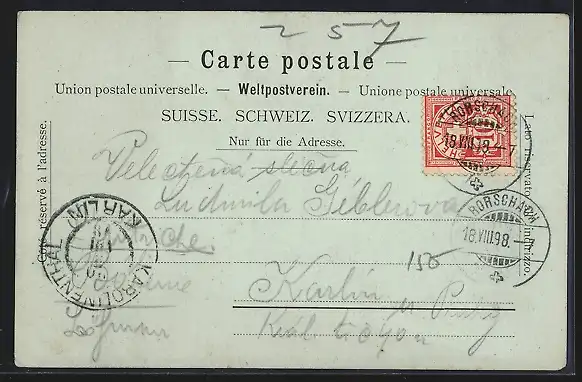 257
— Carte postale —
Union postale universelle. — Weltpostverein. — Unione postale universale
SUISSE. SCHWEIZ. SVIZZERA.
Nur für die Adresse.
Côté réservé à l'adresse.
Lato riservato all'indirizzo.
RORSCHACH
18.VIII.98.–7
Velectěná slečna
Ludmila Géblerova
RORSCHACH
18.VIII.98.–7
KAROLINENTHAL
KARLIN
Autriche
150
Karlin
Král